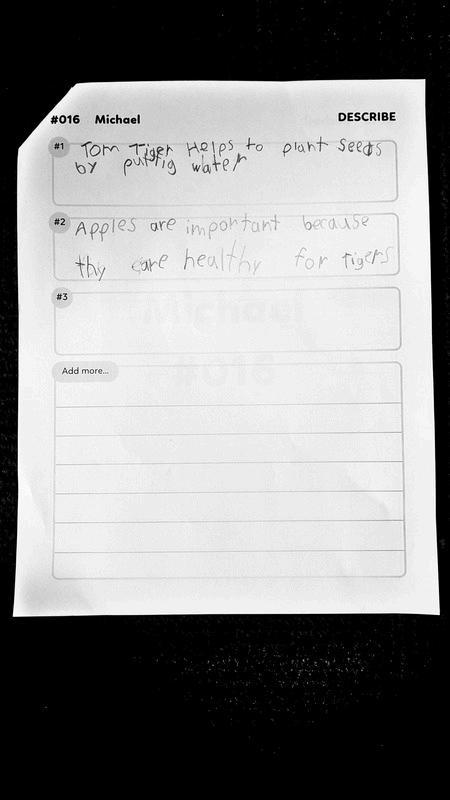 #016 Michael DESCRIBE
#1 Tom Tiger Helps to plant Seeds
by puttig water
#2 Apples are important because
thy are healthy for tigers
#3
Michael
#016
Add more...